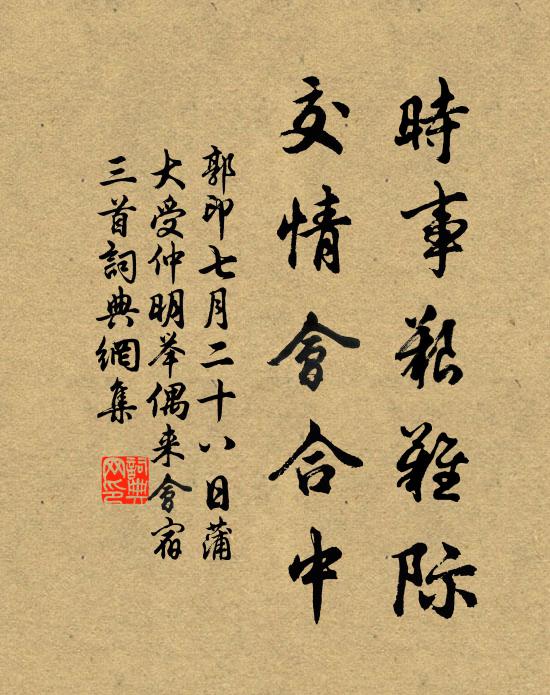 時事艱難际
交情會合中
郭印七月二十八日蒲
大受仲明举偶来會宿
三首詞典網集
詞典网印